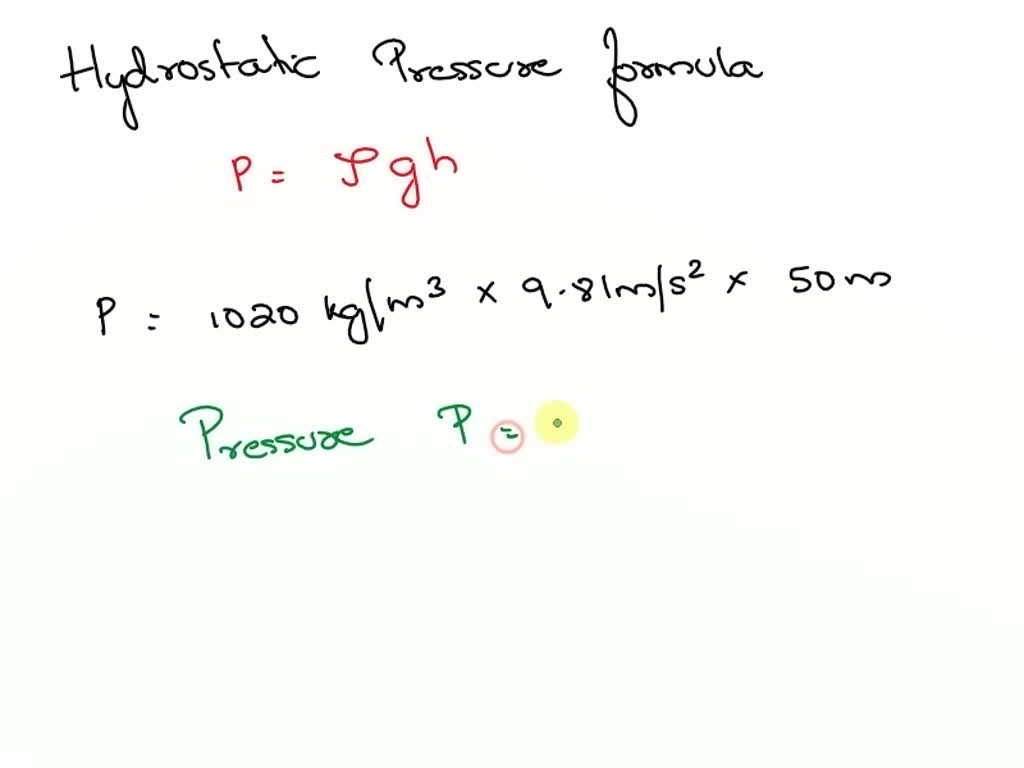 Hydrostatic Pressure formula
P = ρgh
P = 1020 kg/m³ × 9.81m/s² × 50m
Pressure P =